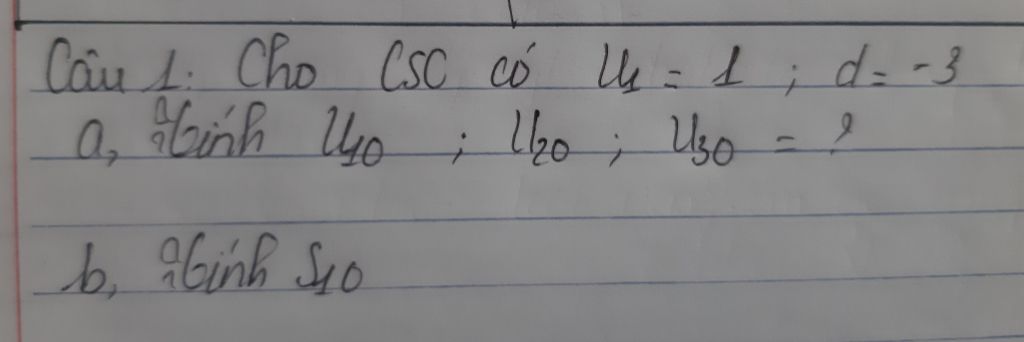 Câu 1: Cho CSC có U1 = 1 ; d = -3
a, Tính U10 ; U20 ; U30 = ?
b, Tính S10